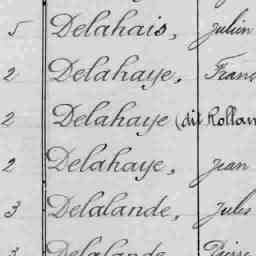 5 Delahais, Julien
2 Delahaye, Franç
2 Delahaye (dit Rollan
2 Delahaye, Jean
3 Delalande, Jules
3 Delalande Pierre